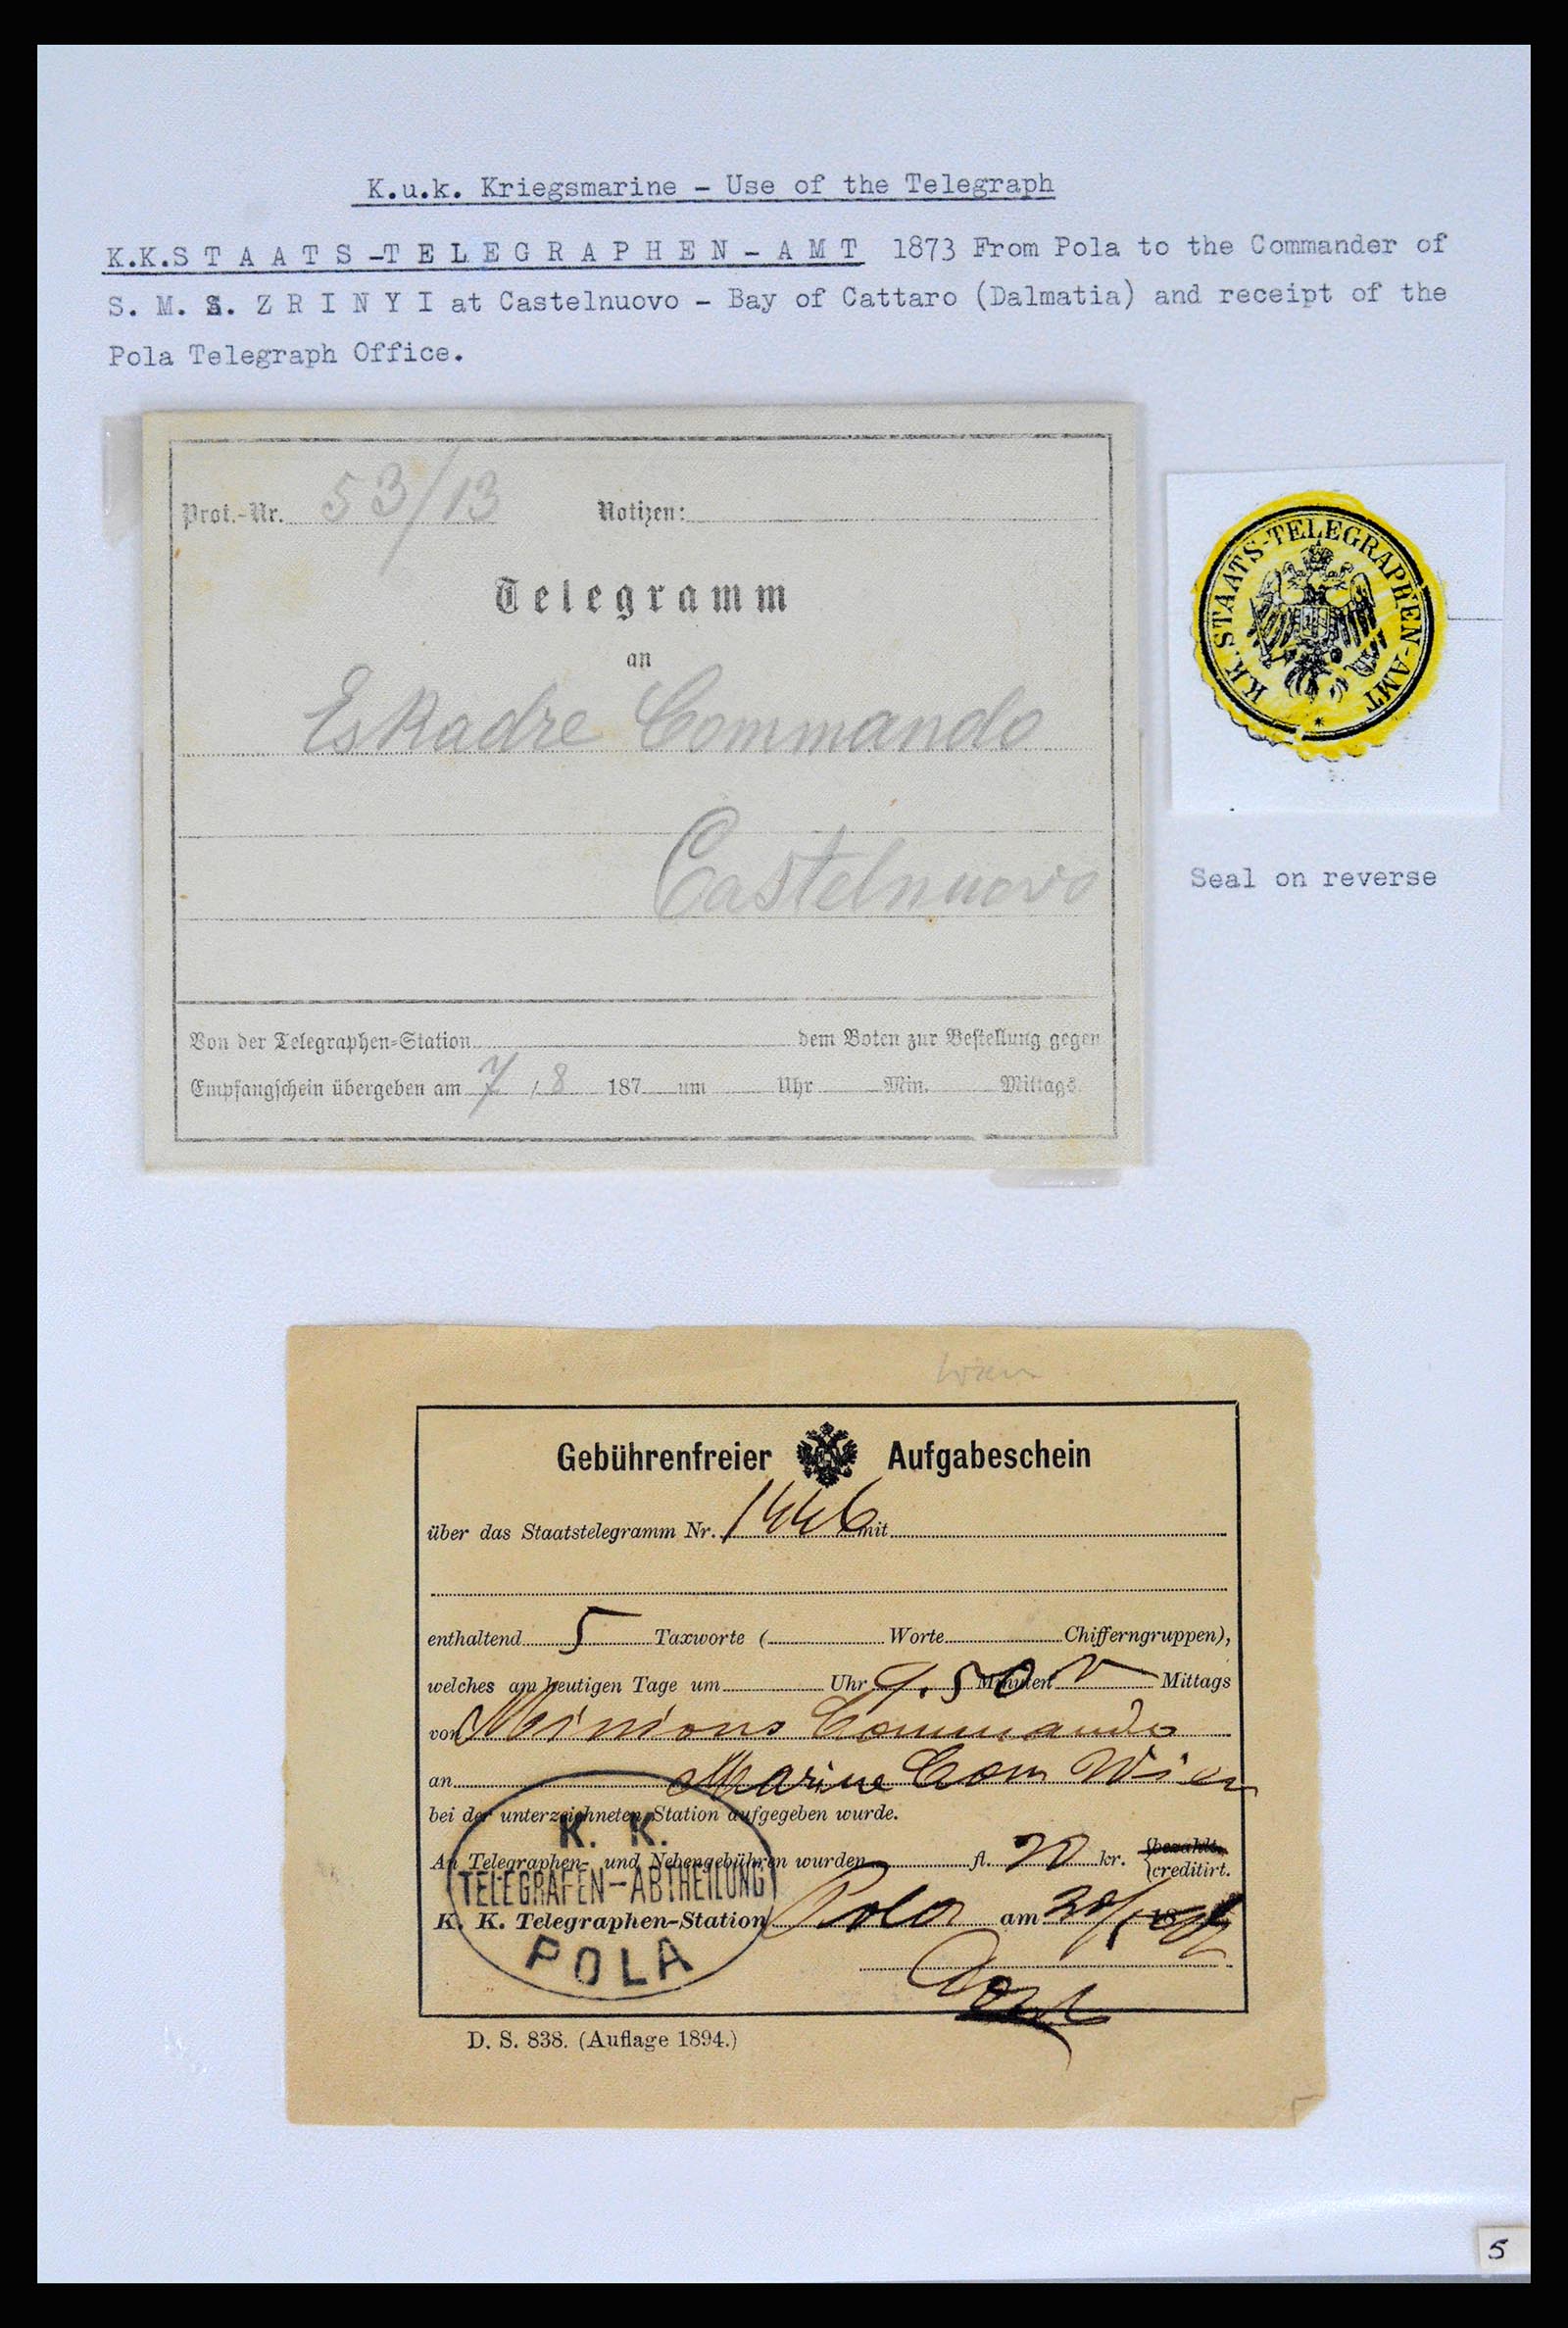 K.u.k. Kriegsmarine – Use of the Telegraph
K.K.S T A A T S -T E L E G R A P H E N - A M T 1873 From Pola to the Commander of
S. M. S. Z R I N Y I at Castelnuovo - Bay of Cattaro (Dalmatia) and receipt of the
Pola Telegraph Office.
Prot.-Nr. 53/13 Notizen:
Telegramm
an
Eskadre Commando
Castelnuovo
Von der Telegraphen-Station dem Boten zur Bestellung gegen
Empfangschein übergeben am 7 / 8 187 um Uhr Min. Mittags.
K.K. STAATS-TELEGRAPHEN-AMT *
Seal on reverse
Wien
Gebührenfreier Aufgabeschein
über das Staatstelegramm Nr. 1446 mit
enthaltend 5 Taxworte ( Worte Chifferngruppen),
welches am heutigen Tage um Uhr 9.50 Minuten V Mittags
von Commando
an Marine Com Wien
bei der unterzeichneten Station aufgegeben wurde.
An Telegraphen- und Nebengebühren wurden fl. 20 kr. {bezahlt. creditirt.
K. K. Telegraphen-Station Pola am
K. K.
TELEGRAFEN-ABTHEILUNG
POLA
D. S. 838. (Auflage 1894.)
5